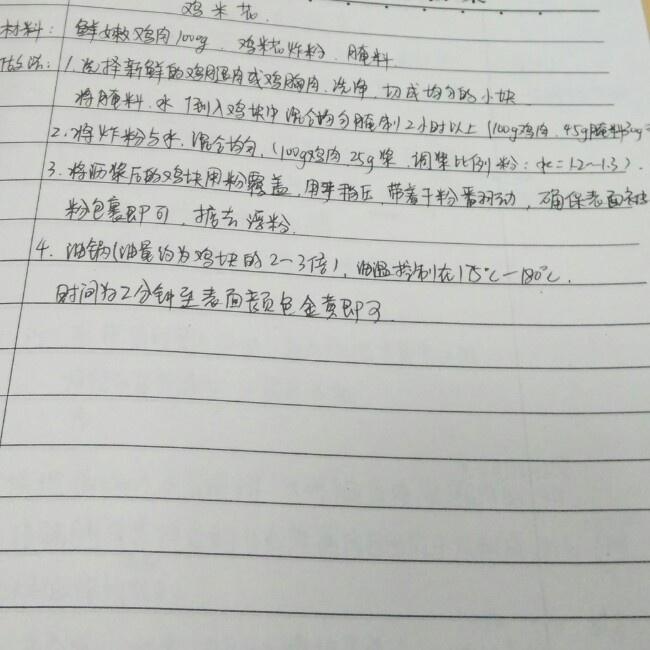 鸡米花.
材料: 鲜嫩鸡肉1000g、鸡米花炸粉、腌料
做法: 1.选择新鲜的鸡腿肉或鸡胸肉、洗净、切成均匀的小块
将腌料、水 倒入鸡块中混合均匀腌制2小时以上(100g鸡肉、45g腌料30g
2.将炸粉与水、混合均匀、(100g鸡肉 25g浆、调浆比例 粉:水=1.2~1.3).
3.将沥浆后的鸡块用粉覆盖,用手稍压,带着干粉翻动,确保表面被
粉包裹即可,抖去浮粉.
4.油锅(油量约为鸡块的2~3倍),油温控制在175℃-180℃.
时间为2分钟至表面颜色金黄即可